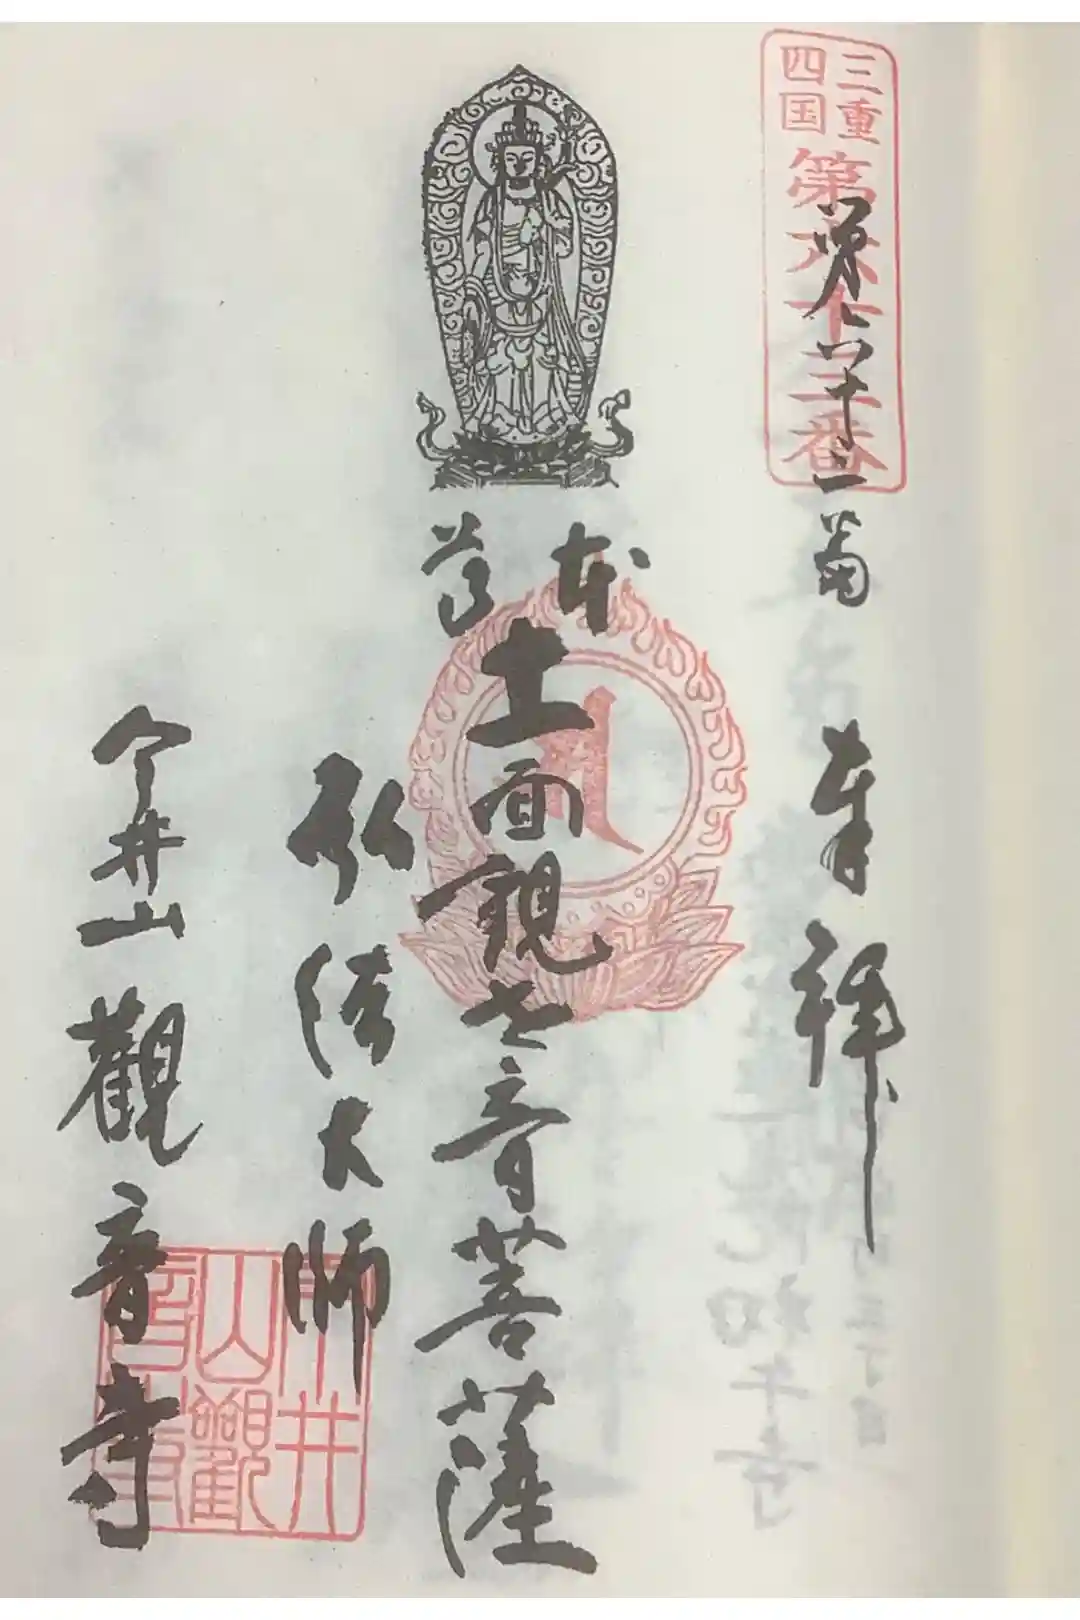 三重
四国
第六十三番
第六十三番
奉拝
本尊
十一面観世音菩薩
弘法大師
今井山 觀音寺
今井山觀音寺